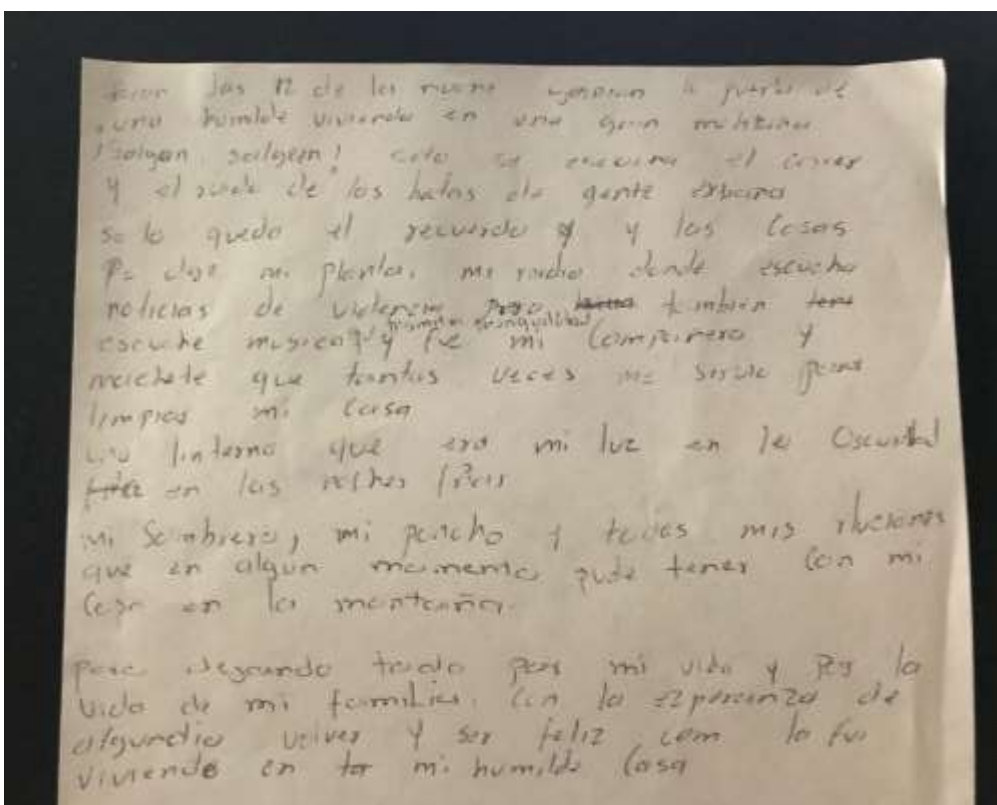 las 12 de la noche la puerta de
una humilde vivienda en una gran
¡Salgan, salgan! solo se el
y el de los de gente
solo queda el recuerdo y las Cosas
mi planta, mi radio donde escucho
noticias de violencia tambien
escuche musica transmitia tranquilidad y fue mi Compañero y
machete que tantas veces me para
limpiar mi Casa
linterna que era mi luz en la Oscuridad
en las noches
mi Sombrero, mi poncho y todas mis iluciones
que en algun momento pude tener Con mi
Casa en la montaña.
todo por mi vida y por la
vida de mi familia. Con la esperanza de
algundia volver y ser feliz com lo fui
viviendo en mi humilde Casa